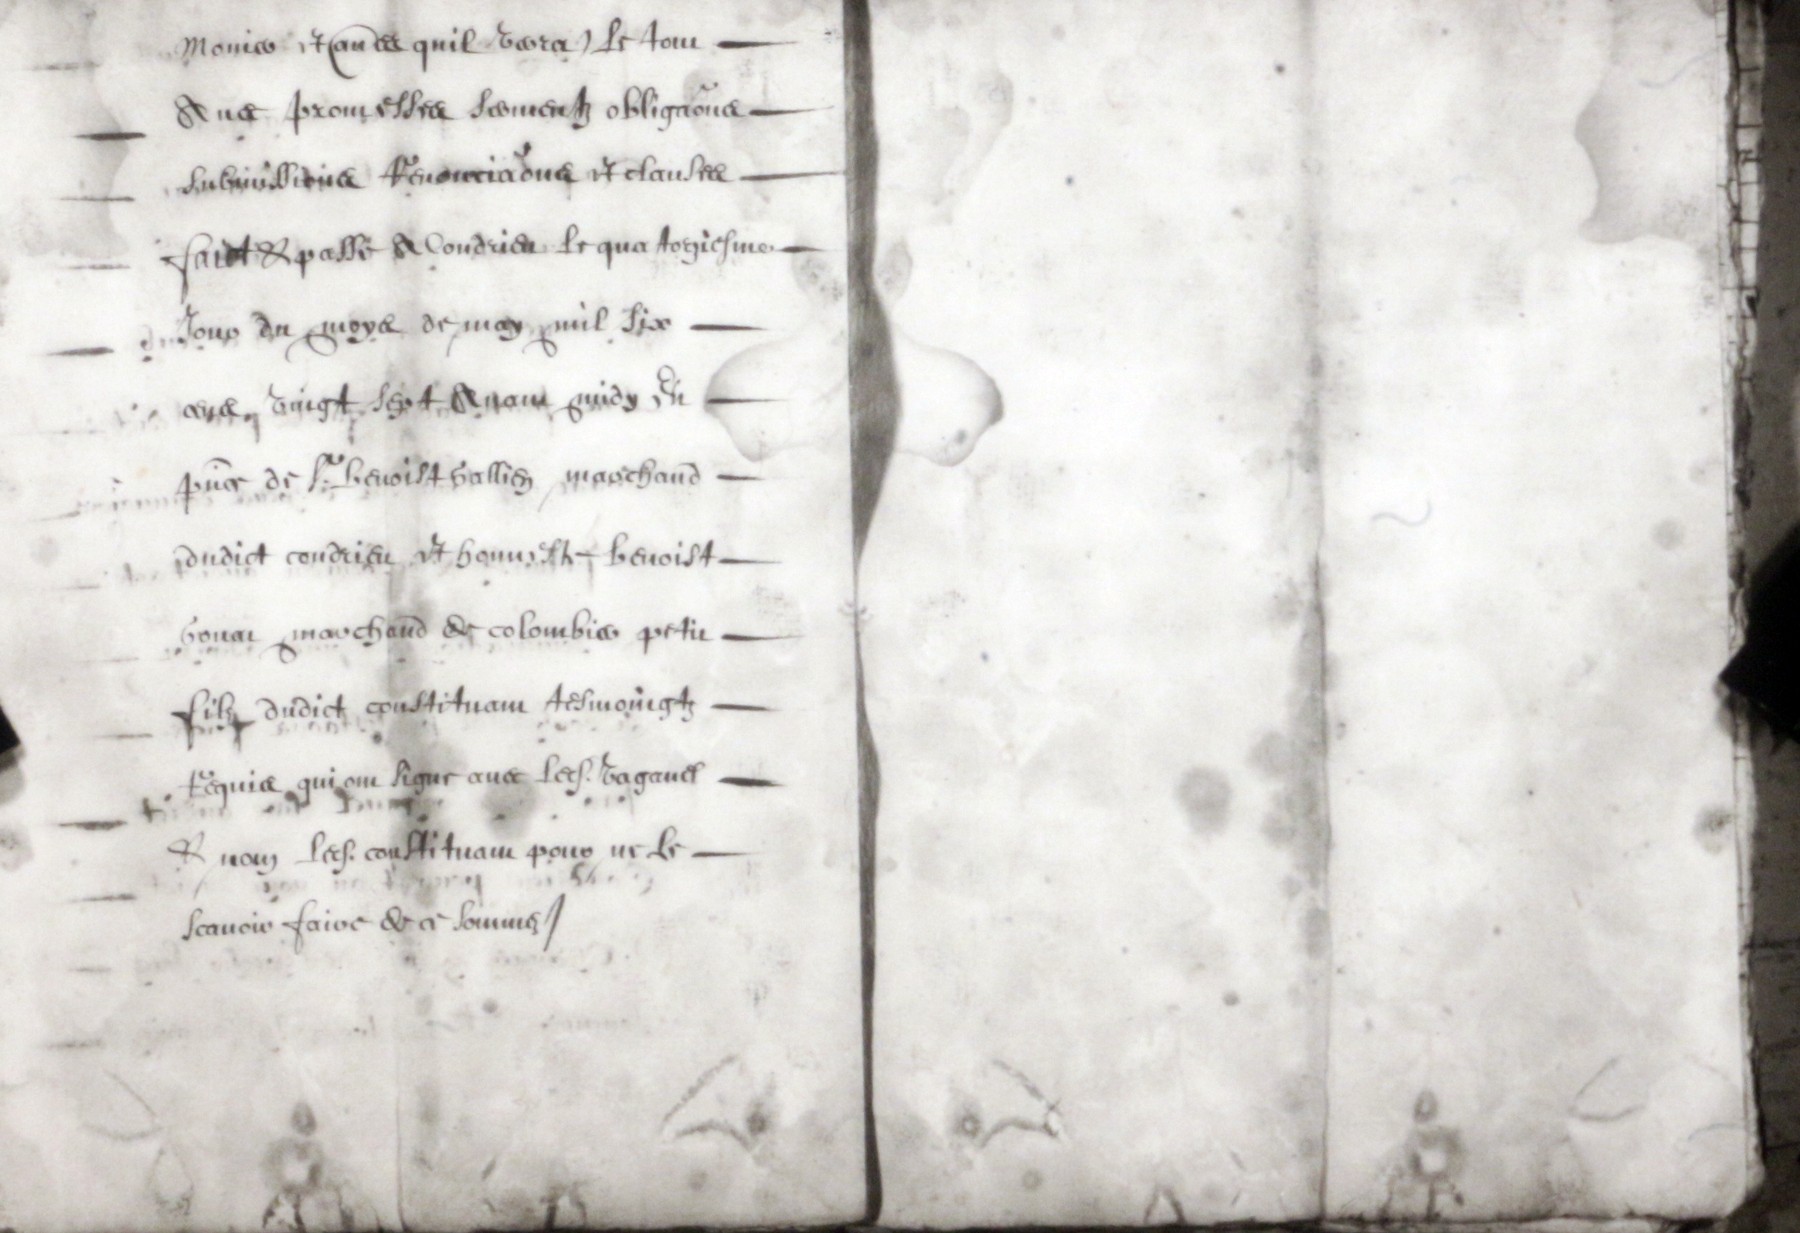 et quil verra le tout
Avec promesses sermentz obligaõns
submissions Renonciaõns et clauses
faict & passé A Condrieu le quatorziesme
Jour du moys de may mil six
cens vingt sept Avant midy En
pñce de Sr. benoist vallin marchand
dudict condrieu et honneste benoist
marchand de colombier petit
filz dudict constituant tesmoingtz
Requis qui ont signe avec led. vaganel
& non led. constituant pour ne le
scavoir faire de ce sommé